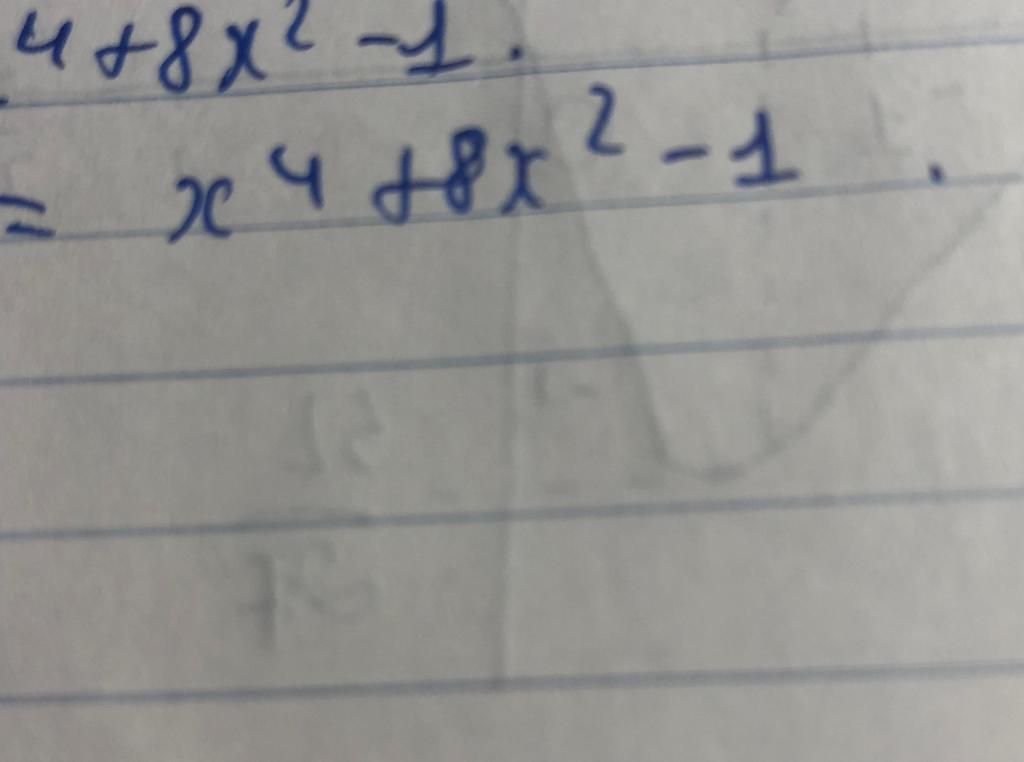 4+8x² -1.
= x⁴ +8x² -1 .